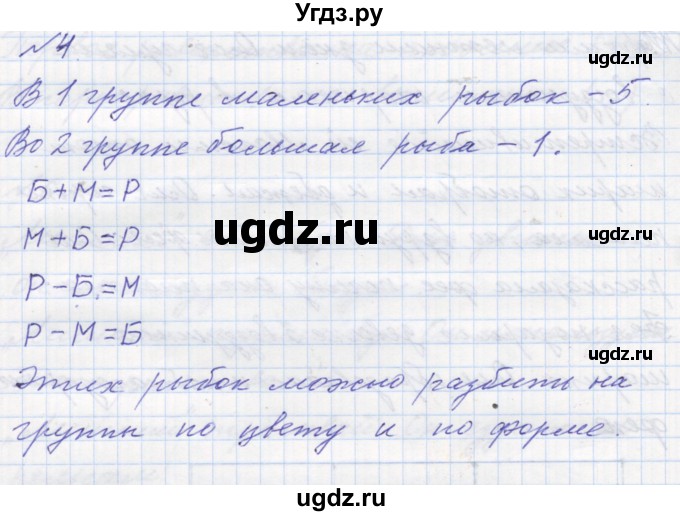 Угдз.ру
№4.
В 1 группе маленьких рыбок – 5.
Во 2 группе большая рыба – 1.
Б + М = Р
М + Б = Р
Р – Б = М
Р – М = Б
Этих рыбок можно разбить на
группы по цвету и по форме.
ugdz.ru
ugdz.ru
ugdz.ru
ugdz.ru
ugdz.ru
ugdz.ru